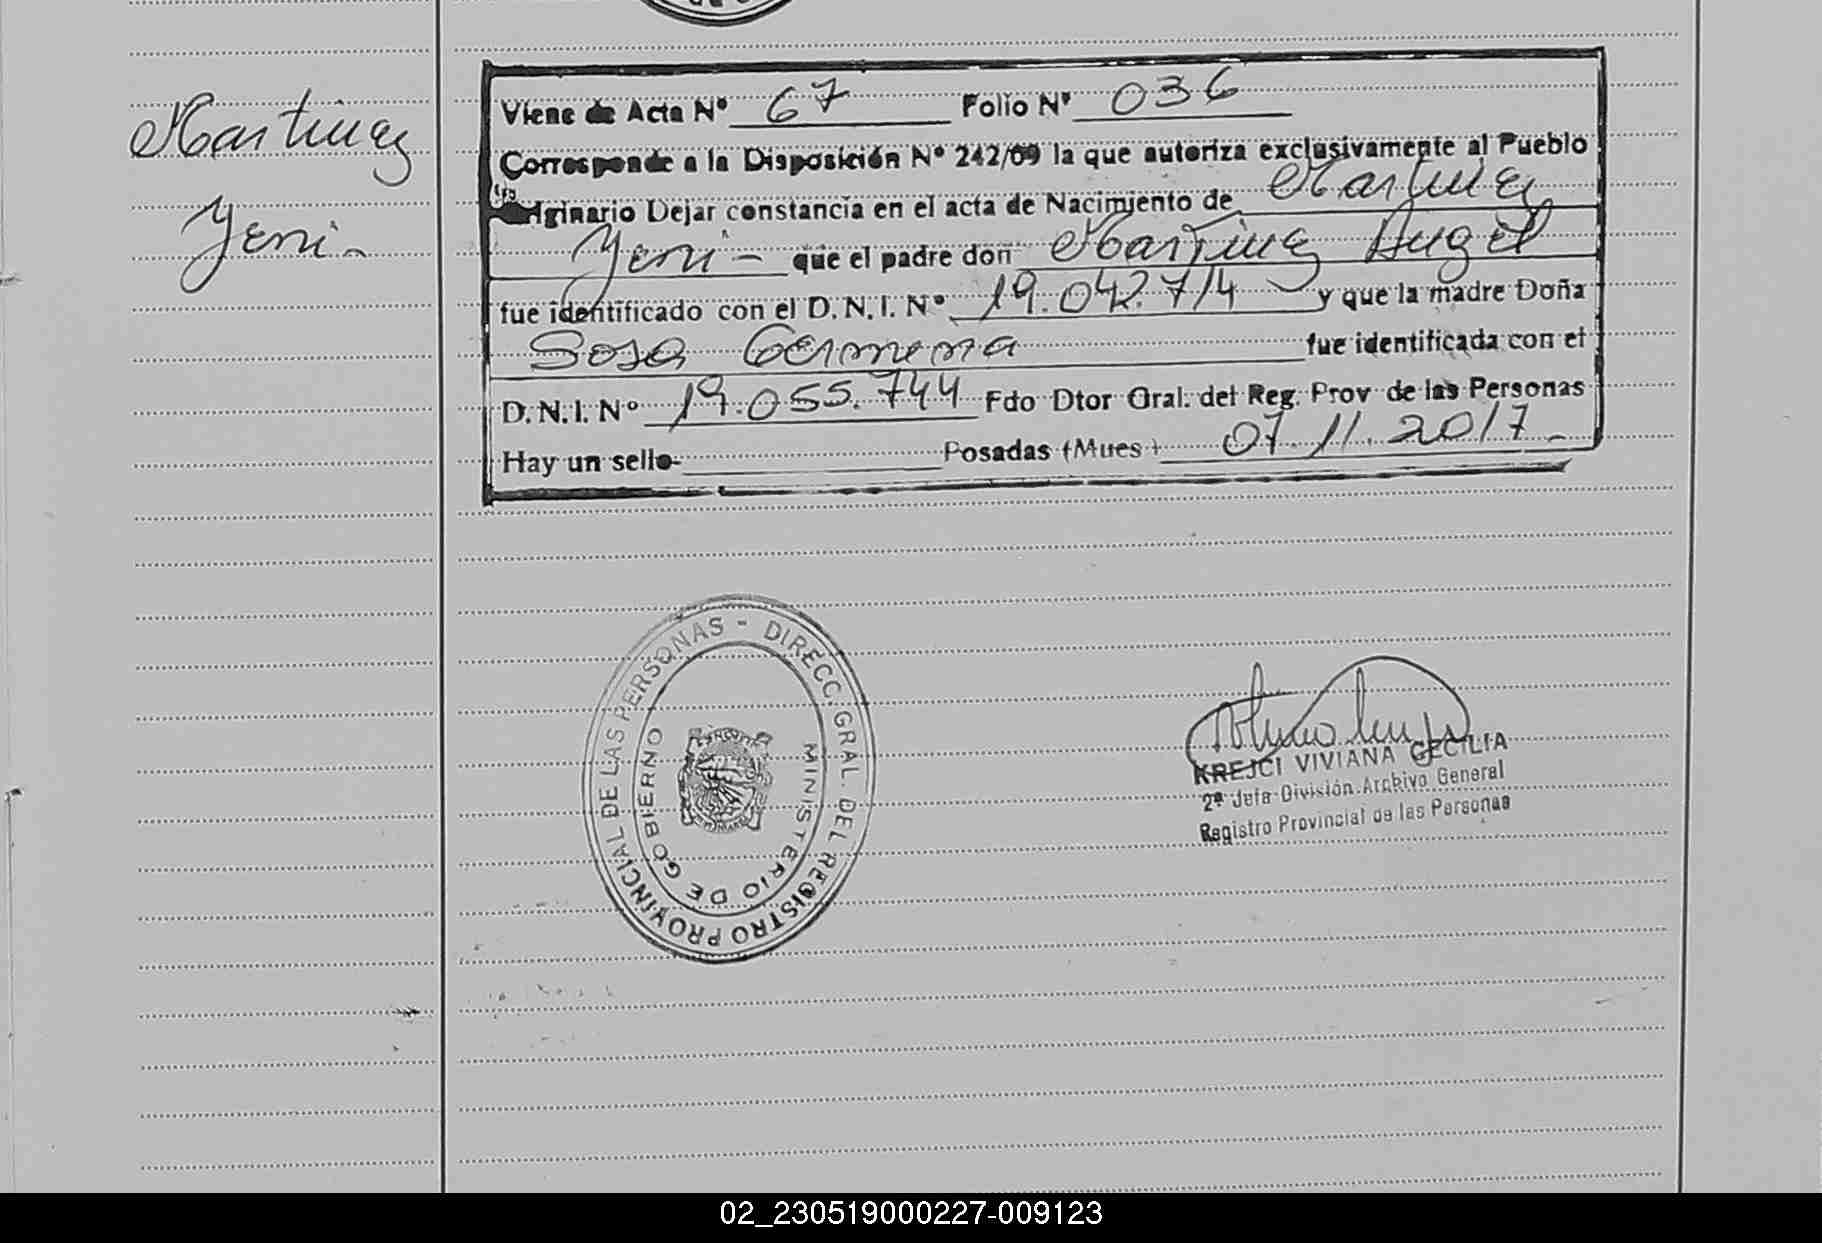 Martinez
Yeni -
Viene de Acta Nº 67 Folio Nº 036
Corresponde a la Disposición Nº 242/09 la que autoriza exclusivamente al Pueblo
Originario Dejar constancia en el acta de Nacimiento de Martinez
Yeni - que el padre don Martinez Angel
fue identificado con el D.N.I. Nº 19.042.714 y que la madre Doña
Sosa Germena fue identificada con el
D.N.I. Nº 19.055.744 Fdo Dtor Gral. del Reg. Prov de las Personas
Hay un sello- Posadas (Mnes) 07.11.2017 -
DIRECC. GRAL. DEL REGISTRO PROVINCIAL DE LAS PERSONAS -
MINISTERIO DE GOBIERNO
KREJCI VIVIANA CECILIA
2ª Jefa División Archivo General
Registro Provincial de las Personas
02_230519000227-009123